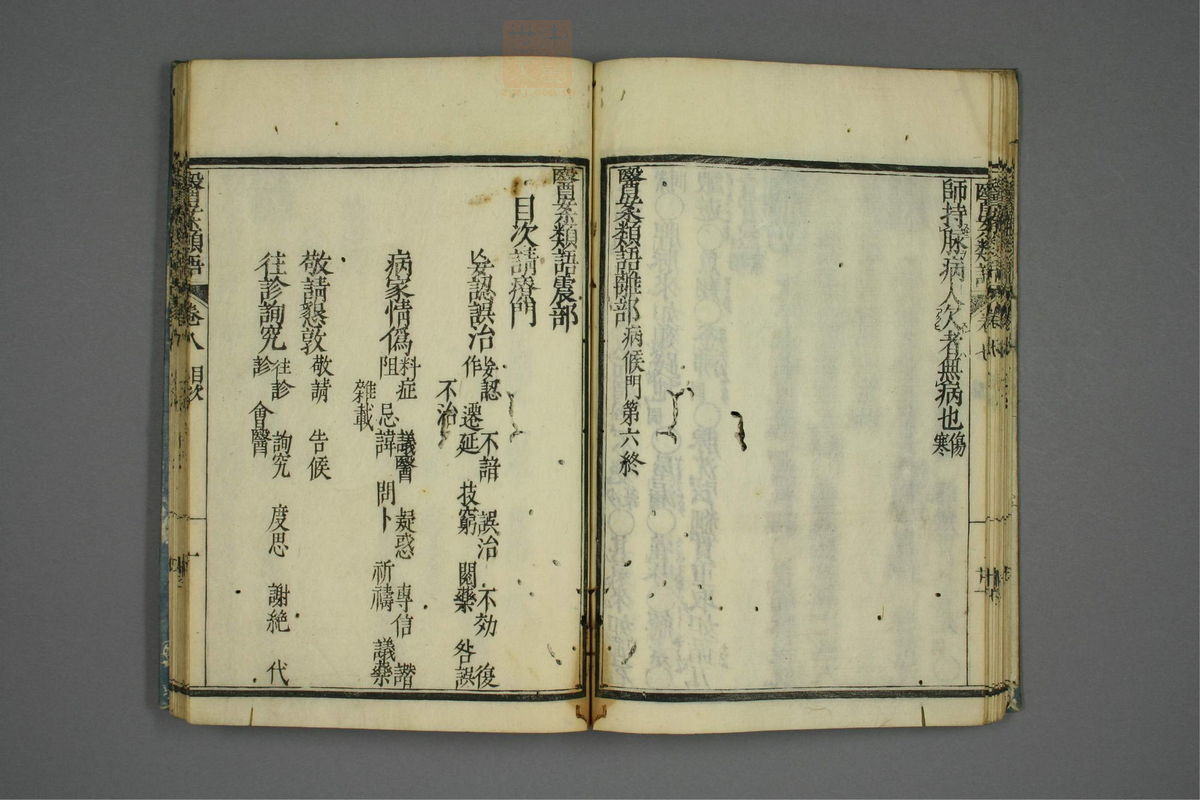 師持脉病人欠者無病也傷寒
醫案類語雖部病候門第六終
醫案類語震部
目次請療門
妄認誤治妄認 不諳 誤治 不効 復作 遷延 技窮 閣藥 咎誤 不治
病家情偽料症 議醫 疑惑 專信 諧阻 忌諱 問卜 祈禱 議藥 雜載
敬請懇敦敬請 告候
往診詢究往診 詢究 度思 謝絶 代診 會醫
醫案類語 卷八 目次